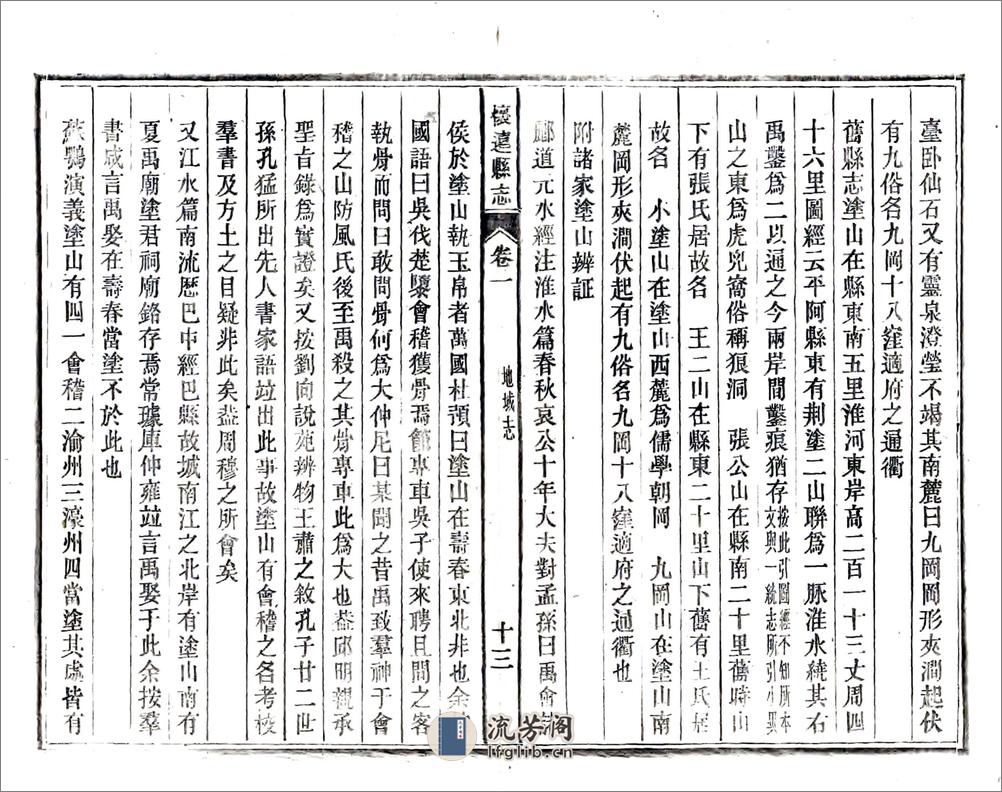 臺卧仙石又有靈泉澄瑩不竭其南麓曰九岡岡形夾澗起伏
有九俗名九岡十八窪適府之通衢
舊縣志塗山在縣東南五里淮河東岸高二百一十三丈周四
十六里圖經云平阿縣東有荆塗二山聯爲一脈淮水繞其右
禹鑿爲二以通之今兩岸間鑿痕猶存按此引圖經不知所本文與一統志所引小異
山之東爲虎兕窩俗稱狼洞　張公山在縣南二十里舊時山
下有張氏居故名　王二山在縣東二十里山下舊有王氏居
故名　小塗山在塗山西麓爲儒學朝岡　九岡山在塗山南
麓岡形夾澗伏起有九俗名九岡十八窪適府之通衢也
附諸家塗山辨証
酈道元水經注淮水篇春秋哀公十年大夫對孟孫曰禹會
懷遠縣志
卷一
地域志
十三
侯於塗山執玉帛者萬國杜預曰塗山在壽春東北非也余
國語曰吳伐楚隳會稽獲骨焉節專車吳子使來聘且問之客
執骨而問曰敢問骨何爲大仲尼曰某聞之昔禹致羣神于會
稽之山防風氏後至禹殺之其骨專車此爲大也葢邱明親承
聖旨錄爲實證矣又按劉向說苑辨物王肅之敘孔子廿二世
孫孔猛所出先人書家語竝出此事故塗山有會稽之名考校
羣書及方土之目疑非此矣葢周穆之所會矣
又江水篇南流歷巴中經巴縣故城南江之北岸有塗山南有
夏禹廟塗君祠廟銘存焉常璩庫仲雍竝言禹娶于此余按羣
書咸言禹娶在壽春當塗不於此也
蘇鶚演義塗山有四一會稽二渝州三濠州四當塗其處皆有
流芳閣
lfglib.cn